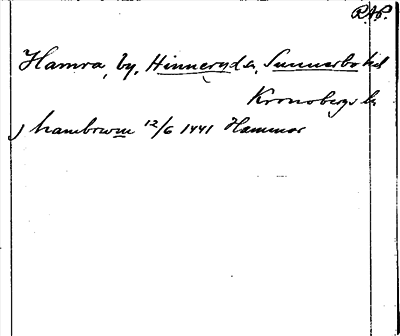 RAP.
Hamra, by, Hinneryds, Sunnerbo hd
Kronobergs l.
j hambrwm 12/6 1441 Hammar